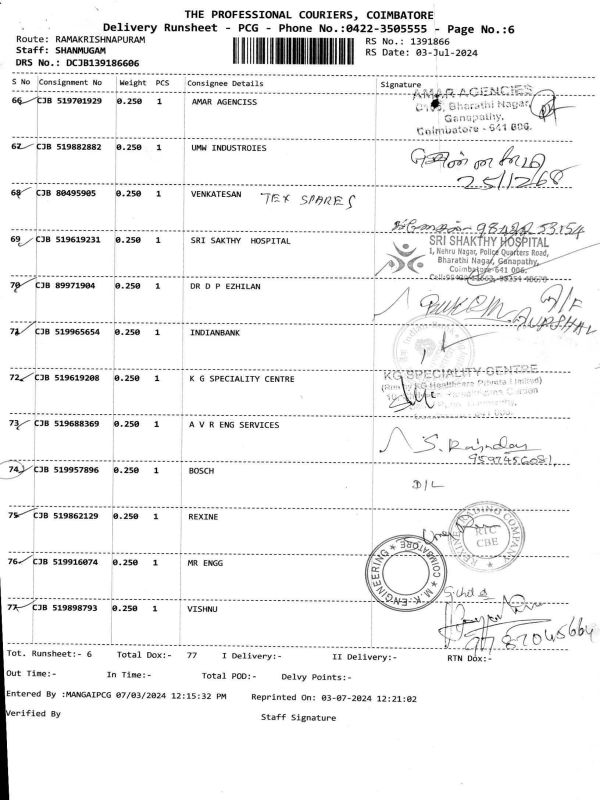 THE PROFESSIONAL COURIERS, COIMBATORE
Delivery Runsheet - PCG - Phone No.:0422-3505555 - Page No.:6
Route: RAMAKRISHNAPURAM
RS No.: 1391866
Staff: SHANMUGAM
RS Date: 03-Jul-2024
DRS No.: DCJB139186606
S No Consignment No Weight PCS Consignee Details Signature
66 CJB 519701929 0.250 1 AMAR AGENCISS
AMAR AGENCIES
Bharathi Nagar,
Ganapathy,
Coimbatore - 641 006.
67 CJB 519882882 0.250 1 UMW INDUSTROIES
25/12/68
68 CJB 80495905 0.250 1 VENKATESAN TEX SPARES
69 CJB 519619231 0.250 1 SRI SAKTHY HOSPITAL
SRI SHAKTHY HOSPITAL
1, Nehru Nagar, Police Quarters Road,
Bharathi Nagar, Ganapathy,
Coimbatore-641 006.
70 CJB 89971904 0.250 1 DR D P EZHILAN
71 CJB 519965654 0.250 1 INDIANBANK
72 CJB 519619208 0.250 1 K G SPECIALITY CENTRE
KG SPECIALITY CENTRE
(Run by KG Healthcare Private Limited)
73 CJB 519688369 0.250 1 A V R ENG SERVICES
74 CJB 519957896 0.250 1 BOSCH D/L
75 CJB 519862129 0.250 1 REXINE
REXINE TRADING COMPANY
RTC
CBE
76 CJB 519916074 0.250 1 MR ENGG
M.K. ENGINEERING
COIMBATORE
77 CJB 519898793 0.250 1 VISHNU
Tot. Runsheet:- 6 Total Dox:- 77 I Delivery:- II Delivery:- RTN Dox:-
Out Time:- In Time:- Total POD:- Delvy Points:-
Entered By :MANGAIPCG 07/03/2024 12:15:32 PM Reprinted On: 03-07-2024 12:21:02
Verified By Staff Signature